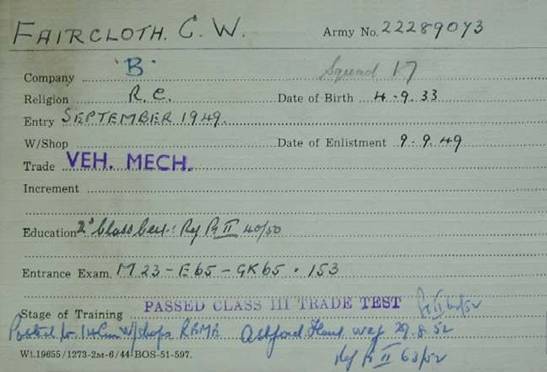 FAIRCLOTH. C. W. Army No. 22289073
Company 'B' Squad 17
Religion R.C. Date of Birth 4.9.33
Entry SEPTEMBER 1949.
W/Shop Date of Enlistment 9.9.49
Trade VEH. MECH.
Increment
Education 2nd Class Cert: Ref Pt II 40/50
Entrance Exam. M23-E65-GK65.153
Stage of Training PASSED CLASS III TRADE TEST Pt II 60/52
Posted to W/shops REME Ashford Kent wef 29.8.52
Ref Pt II 63/52
Wt.19655/1273-2M-6/44-BOS-51-597.